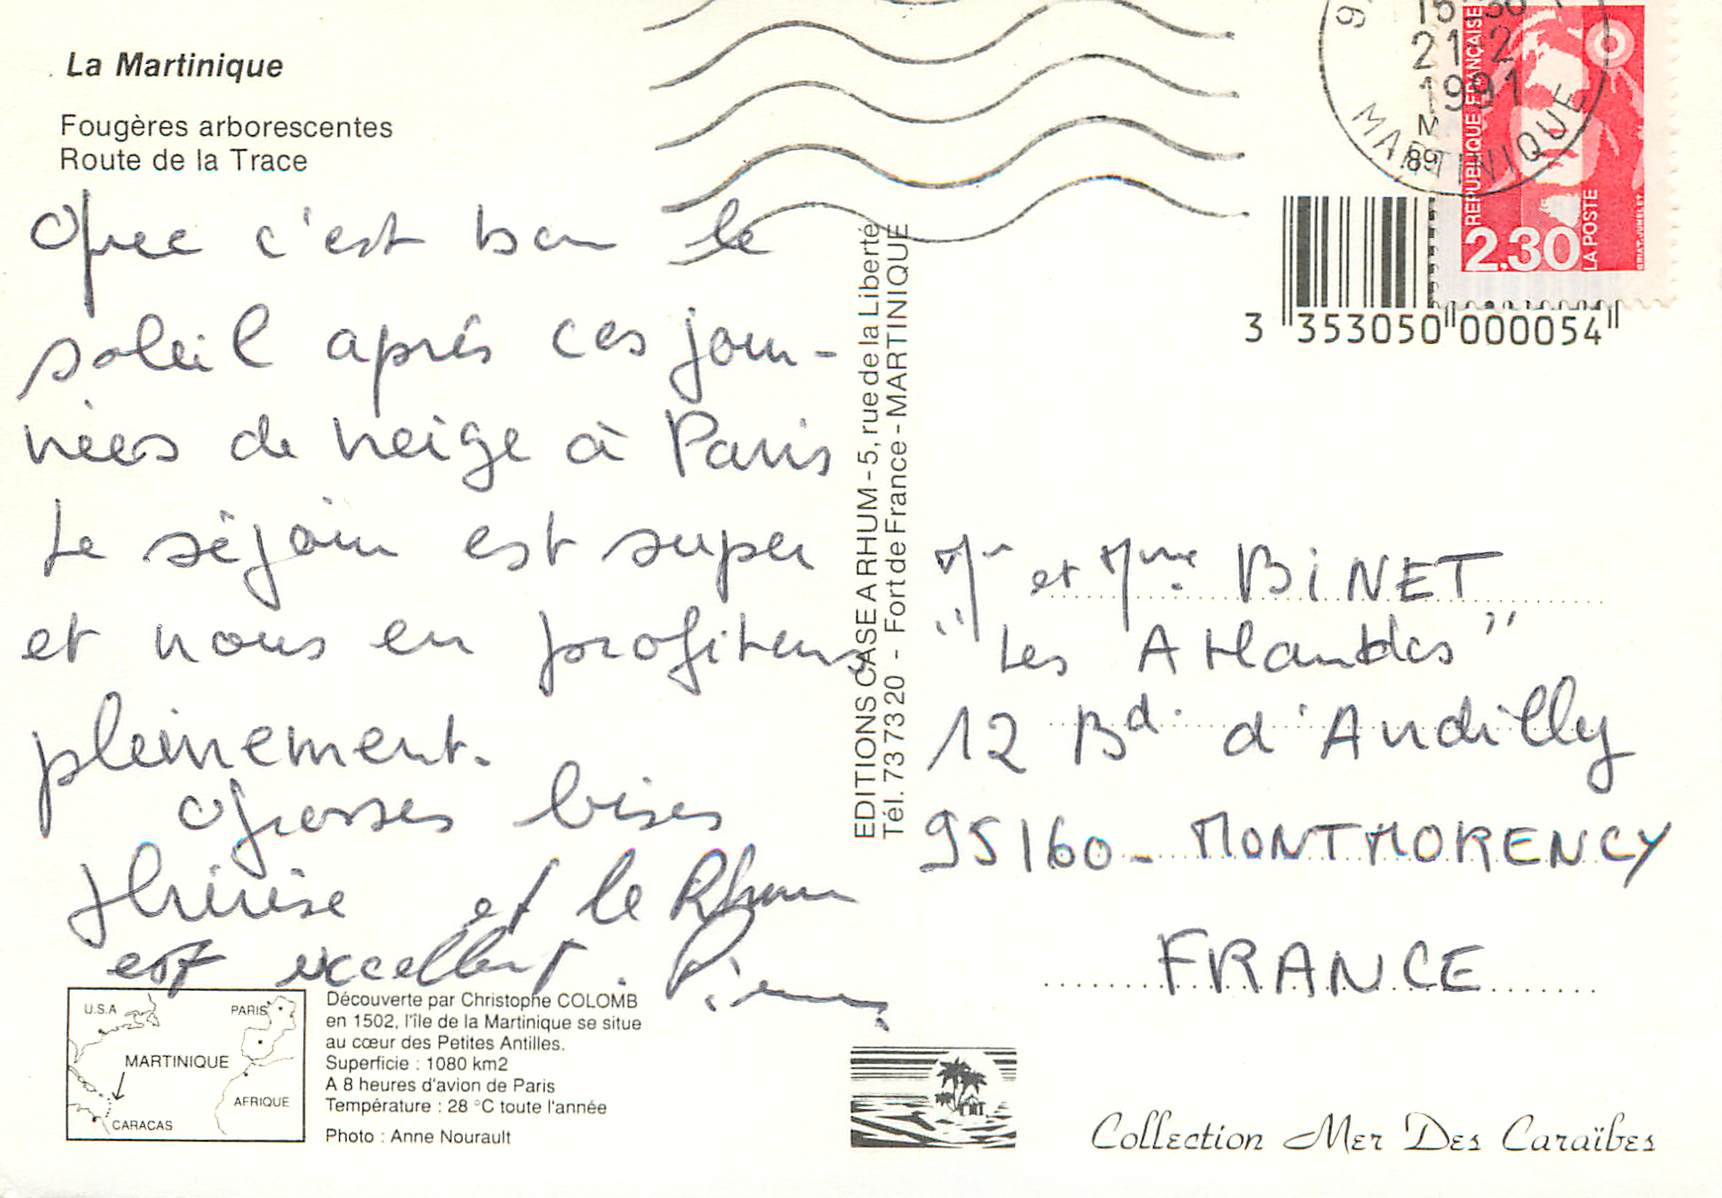 La Martinique
Fougères arborescentes
Route de la Trace
Que c'est bon le
soleil après ces jour-
nées de neige à Paris
Le séjour est super
et nous en profitons
pleinement.
Grosses bises
Thérèse et le Rhum
est excellent. Pierre
U.S.A
PARIS
MARTINIQUE
AFRIQUE
CARACAS
Découverte par Christophe COLOMB
en 1502, l'île de la Martinique se situe
au cœur des Petites Antilles.
Superficie : 1080 km2
A 8 heures d'avion de Paris
Température : 28 °C toute l'année
Photo : Anne Nourault
EDITIONS CASE A RHUM - 5, rue de la Liberté
Tél. 73 73 20 - Fort de France - MARTINIQUE
21-2
1991
MARTINIQUE
REPUBLIQUE FRANÇAISE
2,30
LA POSTE
BRIAT-JUMELET
3 353050 000054
Mr et Mme BINET
"Les Atlantes"
12 Bd. d'Andilly
95160 - MONTMORENCY
FRANCE
Collection Mer Des Caraïbes